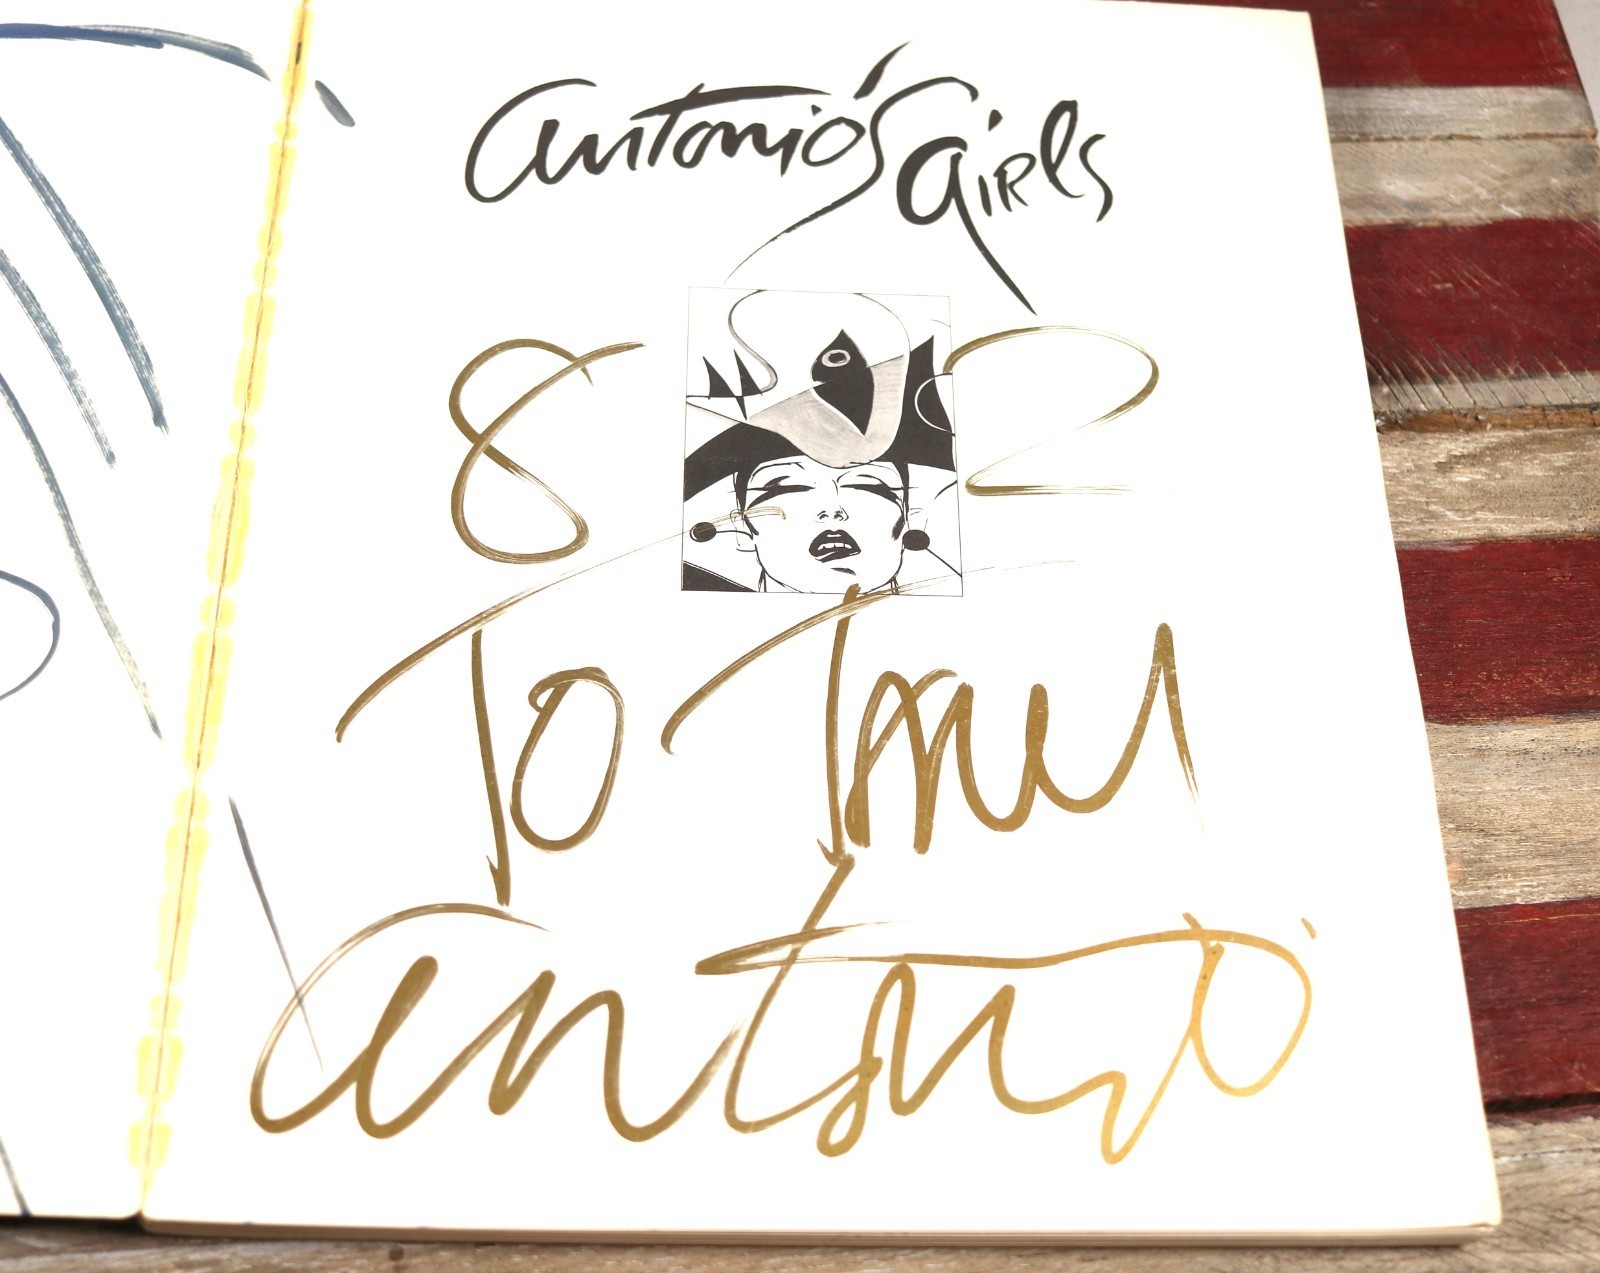 Antonio's Girls
82
To
Antonio